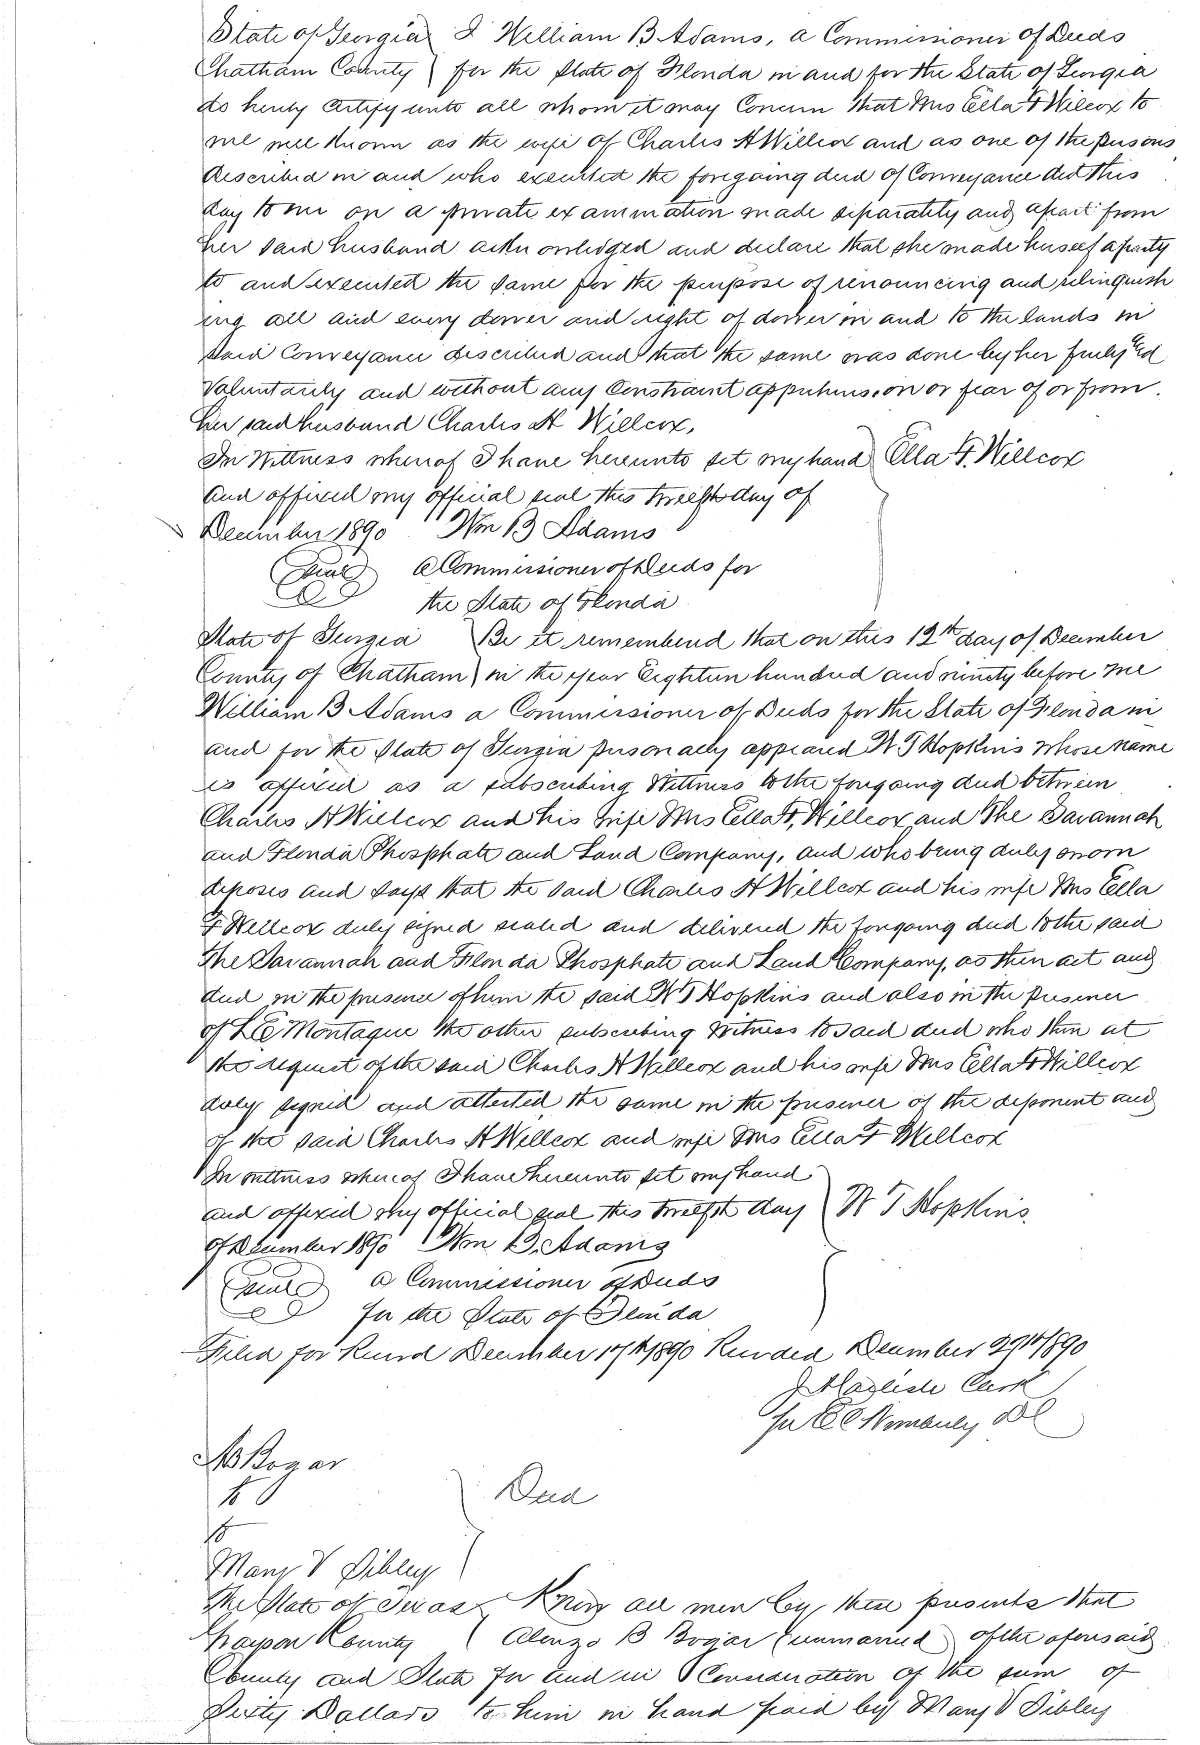 State of Georgia } I William B Adams, a Commissioner of Deeds
Chatham County } for the State of Florida in and for the State of Georgia
do hereby certify unto all whom it may Concern that Mrs Ella F Wilcox to
me well known as the wife of Charles H Willcox and as one of the persons
described in and who executed the foregoing deed of Conveyance did this
day to me on a private examination made separately and apart from
her said husband acknowledged and declare that she made herself a party
to and executed the same for the purpose of renouncing and relinquish
ing all and every dower and right of dower in and to the lands in
said Conveyance described and that the same was done by her freely and
Voluntarily and without any Constraint apprehension or fear of or from
her said husband Charles H Willcox,
In Wittness whereof I have hereunto set my hand } Ella F. Willcox
and affixed my official seal this twelfth day of
December 1890 Wm B Adams
(seal) a Commissioner of Deeds for
the State of Florida
State of Georgia } Be it remembered that on this 12th day of December
County of Chatham } in the year Eighteen hundred and ninety before me
William B Adams a Commissioner of Deeds for the State of Florida in
and for the State of Georgia personally appeared W T Hopkins whose name
is affixed as a subscribing Wittness to the forgoing deed between
Charles H Willcox and his wife Mrs Ella F, Willcox and The Savannah
and Florida Phosphate and Land Company, and who being duly sworn
deposes and says that the said Charles H Willcox and his wife Mrs Ella
F Willcox duly signed sealed and delivered the forgoing deed to the said
The Savannah and Florida Phosphate and Land Company, as their act and
deed in the presence of him the said W T Hopkins and also in the presence
of L E Montague the other subscribing witness to said deed who then at
the request of the said Charles H Willcox and his wife Mrs Ella F Willcox
duly signed and attested the same in the presence of the deponent and
of the said Charles H Willcox and wife Mrs Ella F Willcox
In wittness whereof I have hereunto set my hand
and affixed my official seal this twelfth day } W T Hopkins.
of December 1890 Wm B. Adams
(seal) a Commissioner of Deeds
for the State of Florida
Filed for Record December 17th 1890 Recorded December 29th 1890
Clerk
DC
A B Bogar
to
to
} Deed
Mary V Sibley
The State of Texas } Know all men by these presents that
Grayson County } Alonzo B Bogar (unmarried) of the aforesaid
County and State for and in Consideration of the sum of
Sixty Dollars to him in hand paid by Mary V Sibley